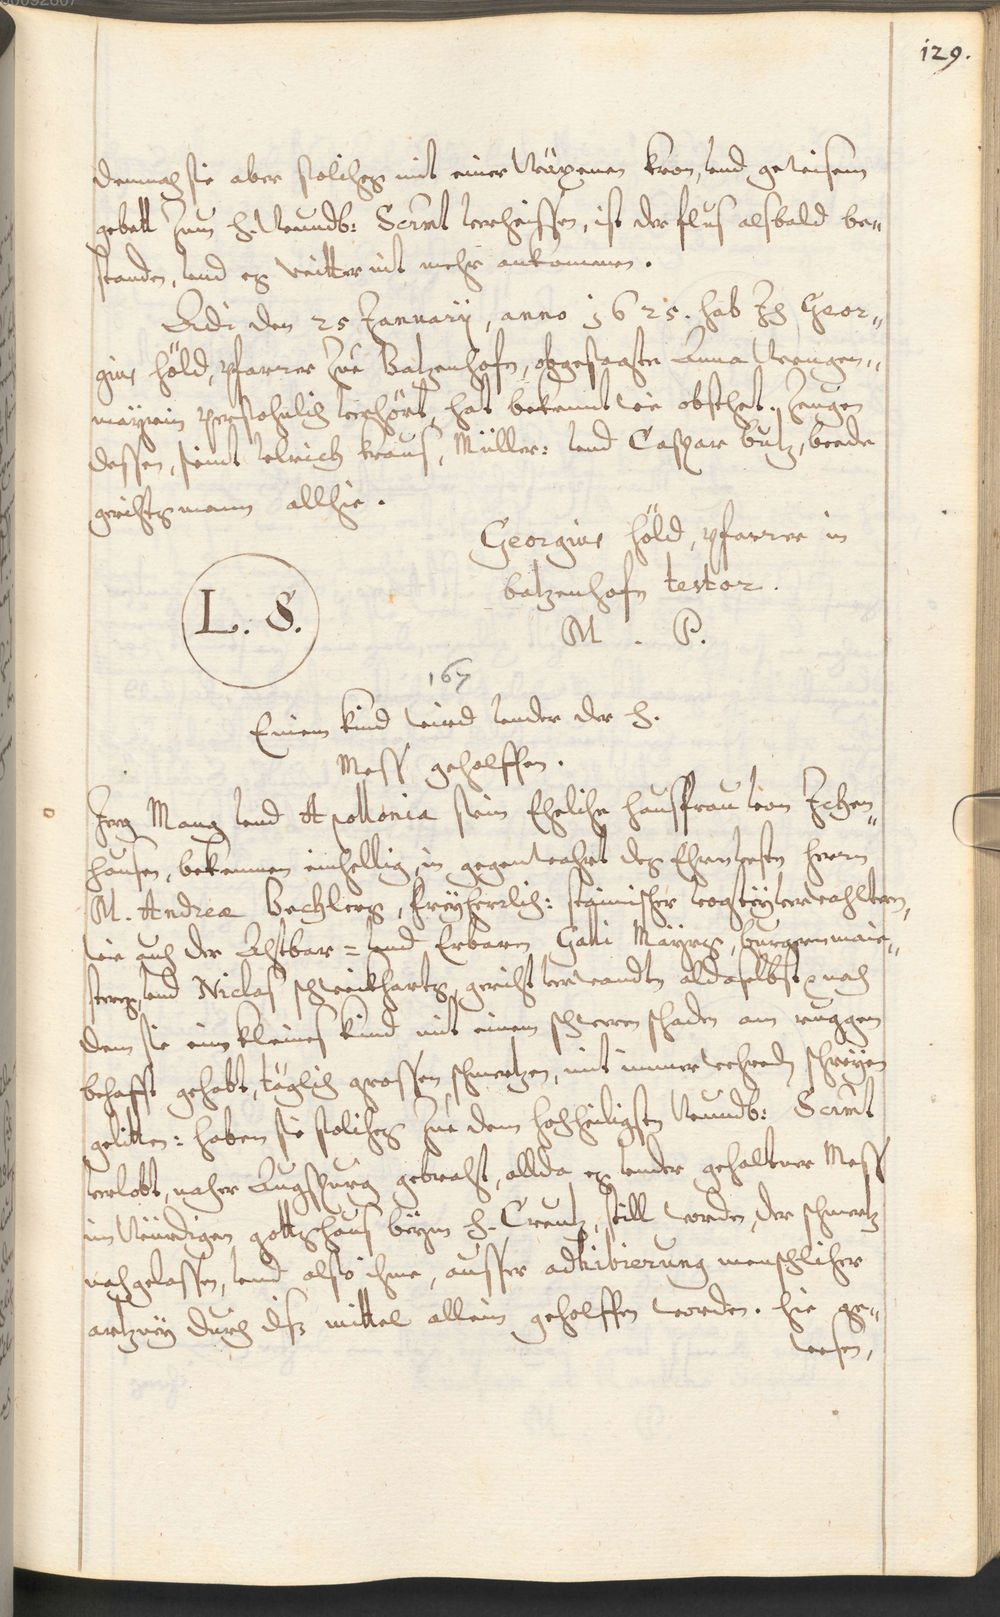 129.
demnach sie aber solches mit einer Wäxenen kron, vnd gewisem
gebett zum h. Wundb: Scrmt verheissen, ist der flus alsbald be„
standen, vnd es weitter nit mehr ankommen.
Adi den 25 Januarij, anno 1625. hab Jch Geor„
gius Höld, pfarrer zue Batzenhofn, obgesagte Anna Wengen„
mayrin persohnlich verhört, hat bekennt wie obsthet. Zeugen
dessen, seint Vlrich kraus, Müller: vnd Caspar butz, beede
gerichtsmann allhie.
Georgius Höld, pfarrer in
batzenhofn testor.
L. S.
M. P.
167
Einem kind wird vnder der h.
Mess geholffen.
Jerg Mang vnd Apollonia sein Eheliche hausfrau von Jchen„
hausen, bekennen einhellig, in gegenwahrt des Ehrnvesten herrn
M. Andreæ Bechlers, freyherrlich: steinischer vogteyverwahltern,
wie auch der Achtbar= vnd Erbarn Galli Mayrs, burgermaie„
sters, vnd Niclas schweikharts, gericht verwandten aldaselbst, nach
dem sie ein kleines kind mit einem schweren schaden am ruggen
behafft gehabt, täglich grossen schmertzen, mit immerwehrendem schreyen
gelitten: haben sie solches zue dem hochheiligsten Wundb: Scrmt
verlobt, naher Augspurg gebracht, allda es vnder gehaltener Mess
im Würdigen gottshaus beym h. Creutz, still worden, der schmertz
nachgelassen, vnd also ihme, ausser adhibierung menschlicher
artzney durch diss mittel allein geholffen worden. hie ge„
wesen,